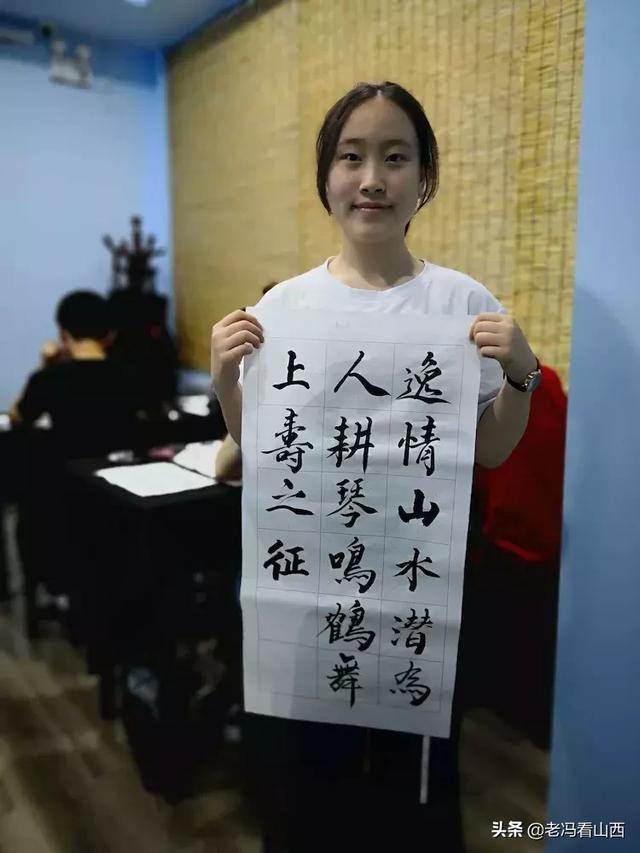 逸情山水潜為
人耕琴鳴鶴舞
上壽之征
头条 @老冯看山西